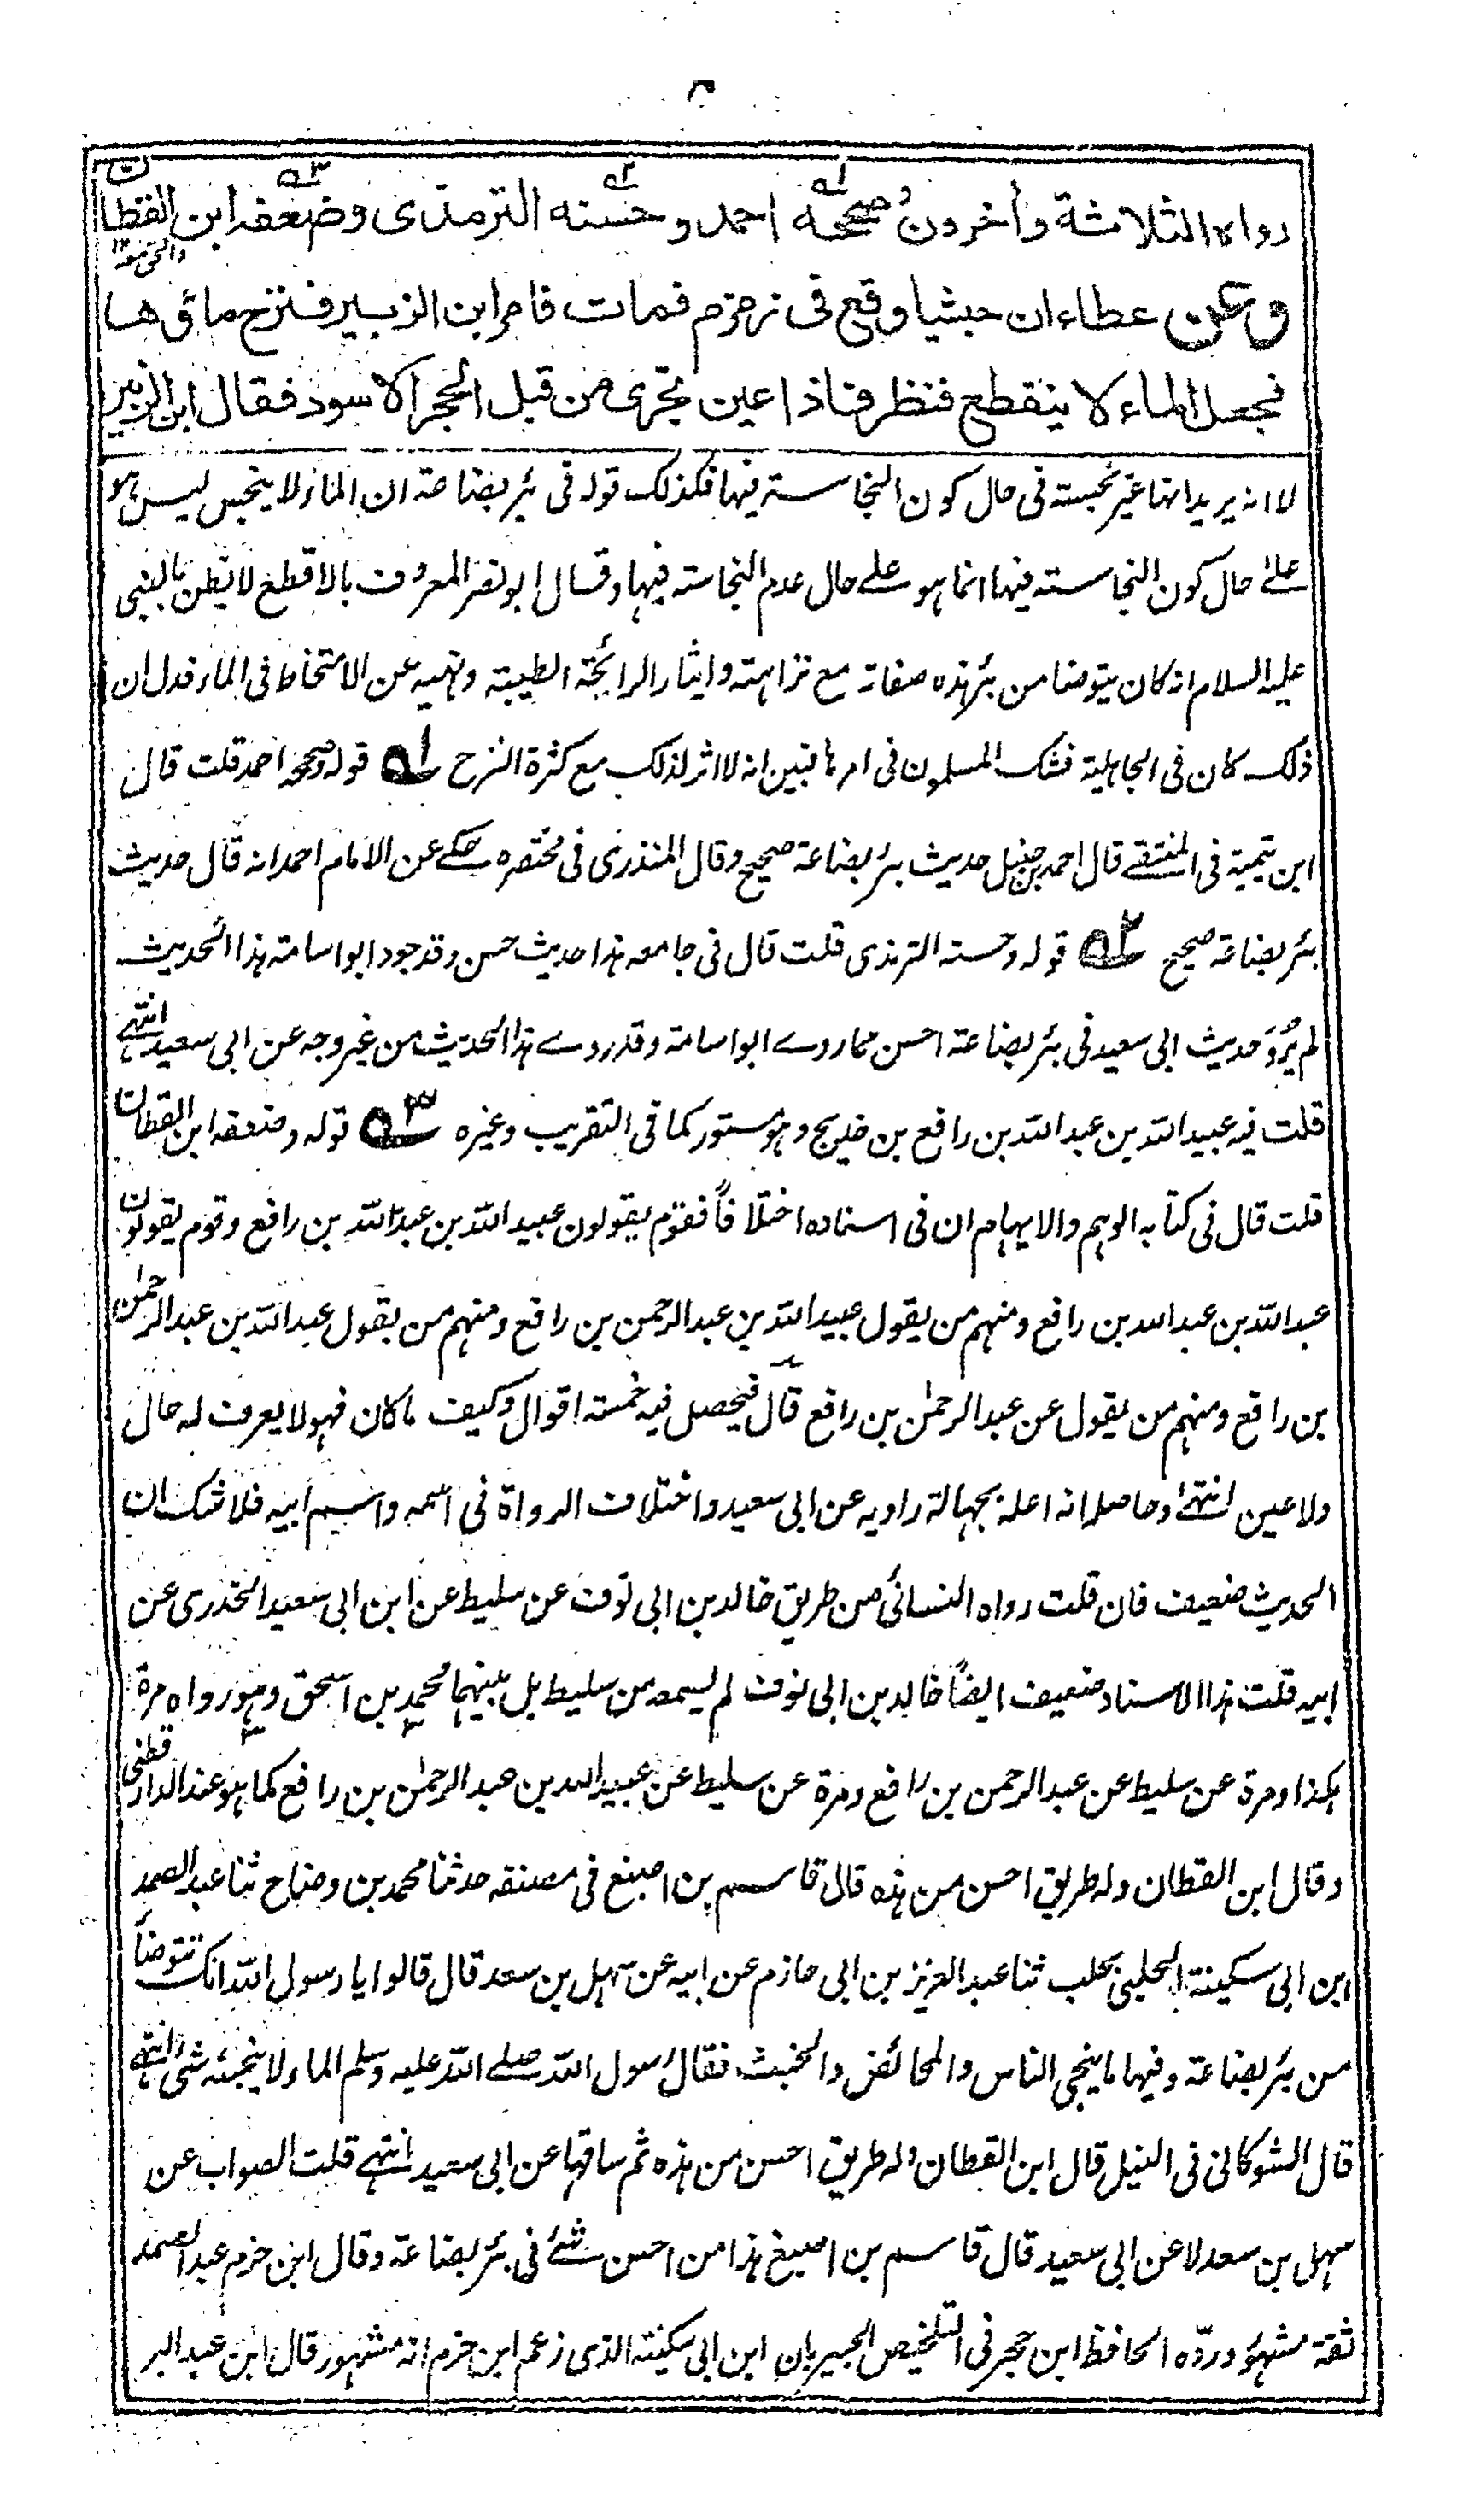 ٣
رواه الثلاثة وأخرون وصححه ١ احمد وحسنه ٢ الترمذى وضعفه ٣ ابن القطان
وعن عطاء ان حبشيا وقع فى زمزم فمات فامر ابن الزبير فنزح ماؤها
فجعل الماء لا ينقطع فنظر فاذا عين تجرى من قبل الحجر الاسود فقال ابن الزبير
لا انه يريد انها غير نجسة فى حال كون النجاسة فيها فكذلك قوله فى بئر بضاعة ان الماء لا ينجس ليس هو
على حال كون النجاسة فيها انما هو على حال عدم النجاسة فيها وقال ابو نصر المعروف بالاقطع لا يظن بالنبى
عليه السلام انه كان يتوضا من بئر هذه صفاته مع نزاهته وايثار الرائحة الطيبة ونهيه عن الامتخاط فى الماء فدل ان
ذلك كان فى الجاهلية فشك المسلمون فى امرها فبين انه لا اثر لذلك مع كثرة النزح ١ قوله وصححه احمد قلت قال
ابن تيمية فى المنتقى قال احمد بن حنبل حديث بئر بضاعة صحيح وقال المنذرى فى مختصره حكى عن الامام احمد انه قال حديث
بئر بضاعة صحيح ٢ قوله وحسنه الترمذى قلت قال فى جامعه هذا حديث حسن وقد جود ابو اسامة هذا الحديث
لم يُرْوَ حديث ابى سعيد فى بئر بضاعة احسن مما روى ابو اسامة وقد روى هذا الحديث من غير وجه عن ابى سعيد انتهى
قلت فيه عبيد الله بن عبد الله بن رافع بن خديج وهو مستور كما فى التقريب وغيره ٣ قوله وضعفه ابن القطان
قلت قال فى كتابه الوهم والايهام ان فى اسناده اختلافاً فقوم يقولون عبيد الله بن عبد الله بن رافع وقوم يقولون
عبد الله بن عبد الله بن رافع ومنهم من يقول عبيد الله بن عبد الرحمن بن رافع ومنهم من يقول عبد الله بن عبد الرحمن
بن رافع ومنهم من يقول عن عبد الرحمٰن بن رافع قال فيحصل فيه خمسة اقوال وكيف ما كان فهو لا يعرف له حال
ولا عين انتهى وحاصله انه اعله بجهالة راويه عن ابى سعيد واختلاف الرواة فى اسمه واسم ابيه فلا شك ان
الحديث ضعيف فان قلت رواه النسائى من طريق خالد بن ابى نوف عن سليط عن ابن ابى سعيد الخدرى عن
ابيه قلت هذا الاسناد ضعيف ايضاً خالد بن ابى نوف لم يسمعه من سليط بل بينهما محمد بن اسحق وهو رواه مرة
هكذا ومرة عن سليط عن عبد الرحمن بن رافع ومرة عن سليط عن عبيد الله بن عبد الرحمٰن بن رافع كما هو عند الدارقطنى
وقال ابن القطان وله طريق احسن من هذه قال قاسم بن اصبغ فى مصنفه حدثنا محمد بن وضاح ثنا عبد الصمد
ابن ابى سكينة الحلبى بحلب ثنا عبد العزيز بن ابى حازم عن ابيه عن سهل بن سعد قال قالوا يا رسول الله انك تتوضأ
من بئر بضاعة وفيها ما ينجى الناس والمحائض والخبث فقال رسول الله صلى الله عليه وسلم الماء لا ينجسه شئ انتهى
قال الشوكانى فى النيل قال ابن القطان وله طريق احسن من هذه ثم ساقها عن ابى سعيد انتهى قلت الصواب عن
سهل بن سعد لا عن ابى سعيد قال قاسم بن اصبغ هذا من احسن شئ فى بئر بضاعة وقال ابن حزم عبد الصمد
ثقة مشهور وردّه الحافظ ابن حجر فى التلخيص الحبير بان ابن ابى سكينة الذى زعم ابن حزم انه مشهور قال ابن عبد البر